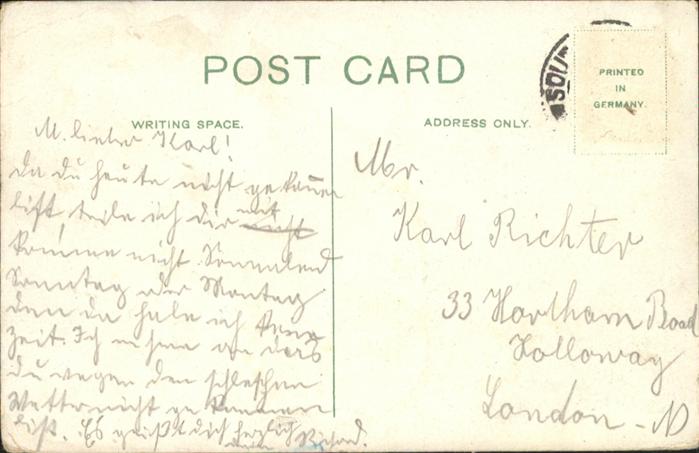 POST CARD
SOU
PRINTED
IN
GERMANY.
WRITING SPACE.
ADDRESS ONLY.
M. lieber Karl!
da du heute nicht gekommen
bist, teile ich dir mit
komme nicht Sonnabend
Sonntag oder Montag
den da habe ich keine
Zeit. Ich nehme an das
du wegen den schlechten
Wetter nicht gekommen
bist. Es grüßt dich herzlich
dein Richard.
Mr.
Karl Richter
33 Hartham Road
Holloway
London - N